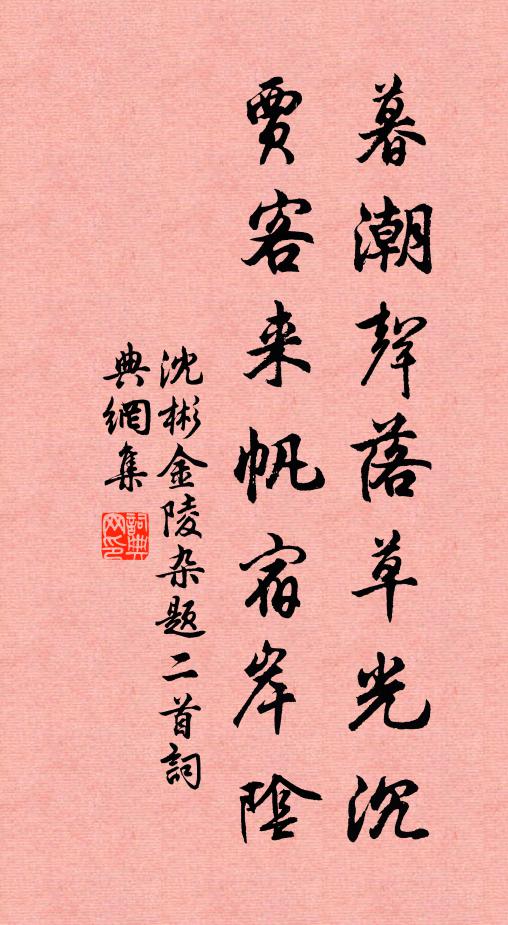 暮潮聲落草光沉
賈客来帆宿岸陰
沈彬金陵杂题二首詞
典網集
詞典网印